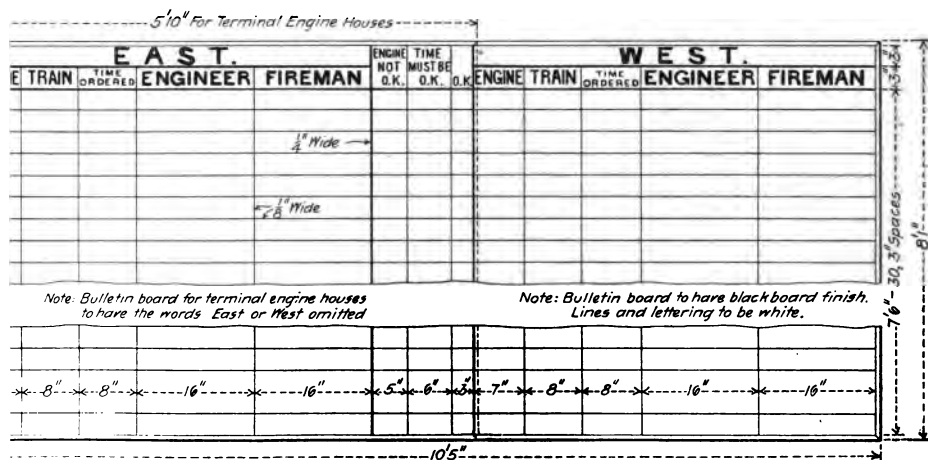 5'10" For Terminal Engine Houses
EAST.
ENGINE NOT O.K.
TIME MUST BE O.K.
O.K.
WEST.
E TRAIN TIME ORDERED ENGINEER FIREMAN ENGINE TRAIN TIME ORDERED ENGINEER FIREMAN
3" 3"
1/4" Wide
1/8" Wide
7'6" - 30, 3" Spaces
8'1"
Note: Bulletin board for terminal engine houses
to have the words East or West omitted
Note: Bulletin board to have blackboard finish.
Lines and lettering to be white.
8" 8" 16" 16" 5" 6" 3" 7" 8" 8" 16" 16"
10'5"